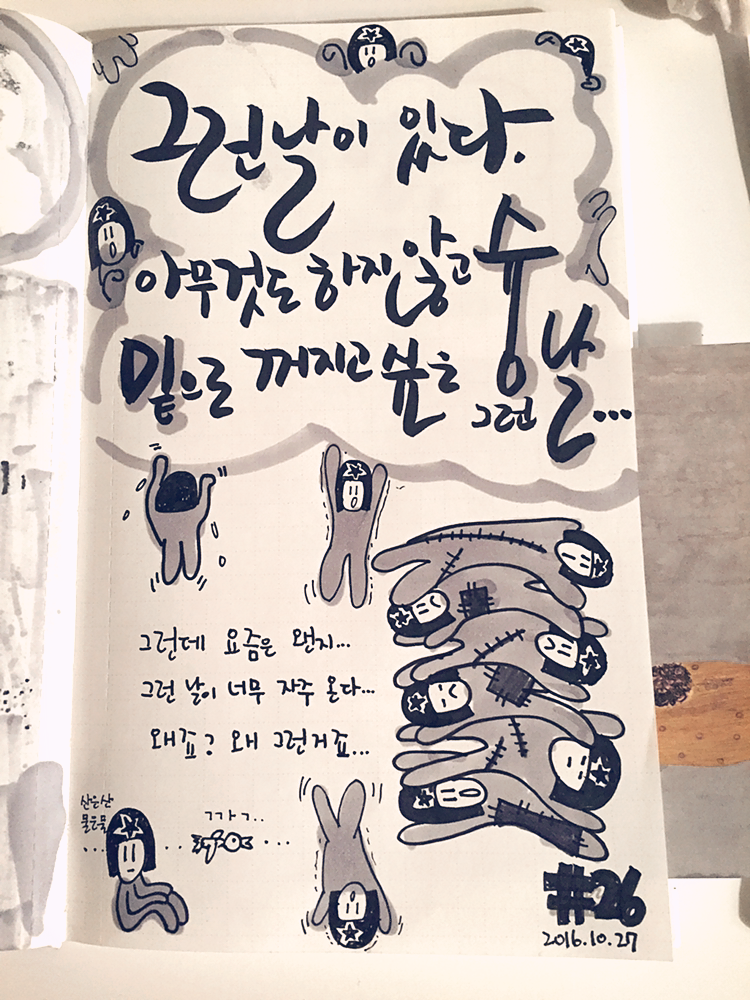 그런 날이 있다.
아무것도 하지 않고 슝
밑으로 꺼지고 싶은 그런 날...
그런데 요즘은 왠지...
그런 날이 너무 자주 온다...
왜죠? 왜 그런거죠...
산은산
물은물
ㄲㅏㄱ..
#26
2016.10.27